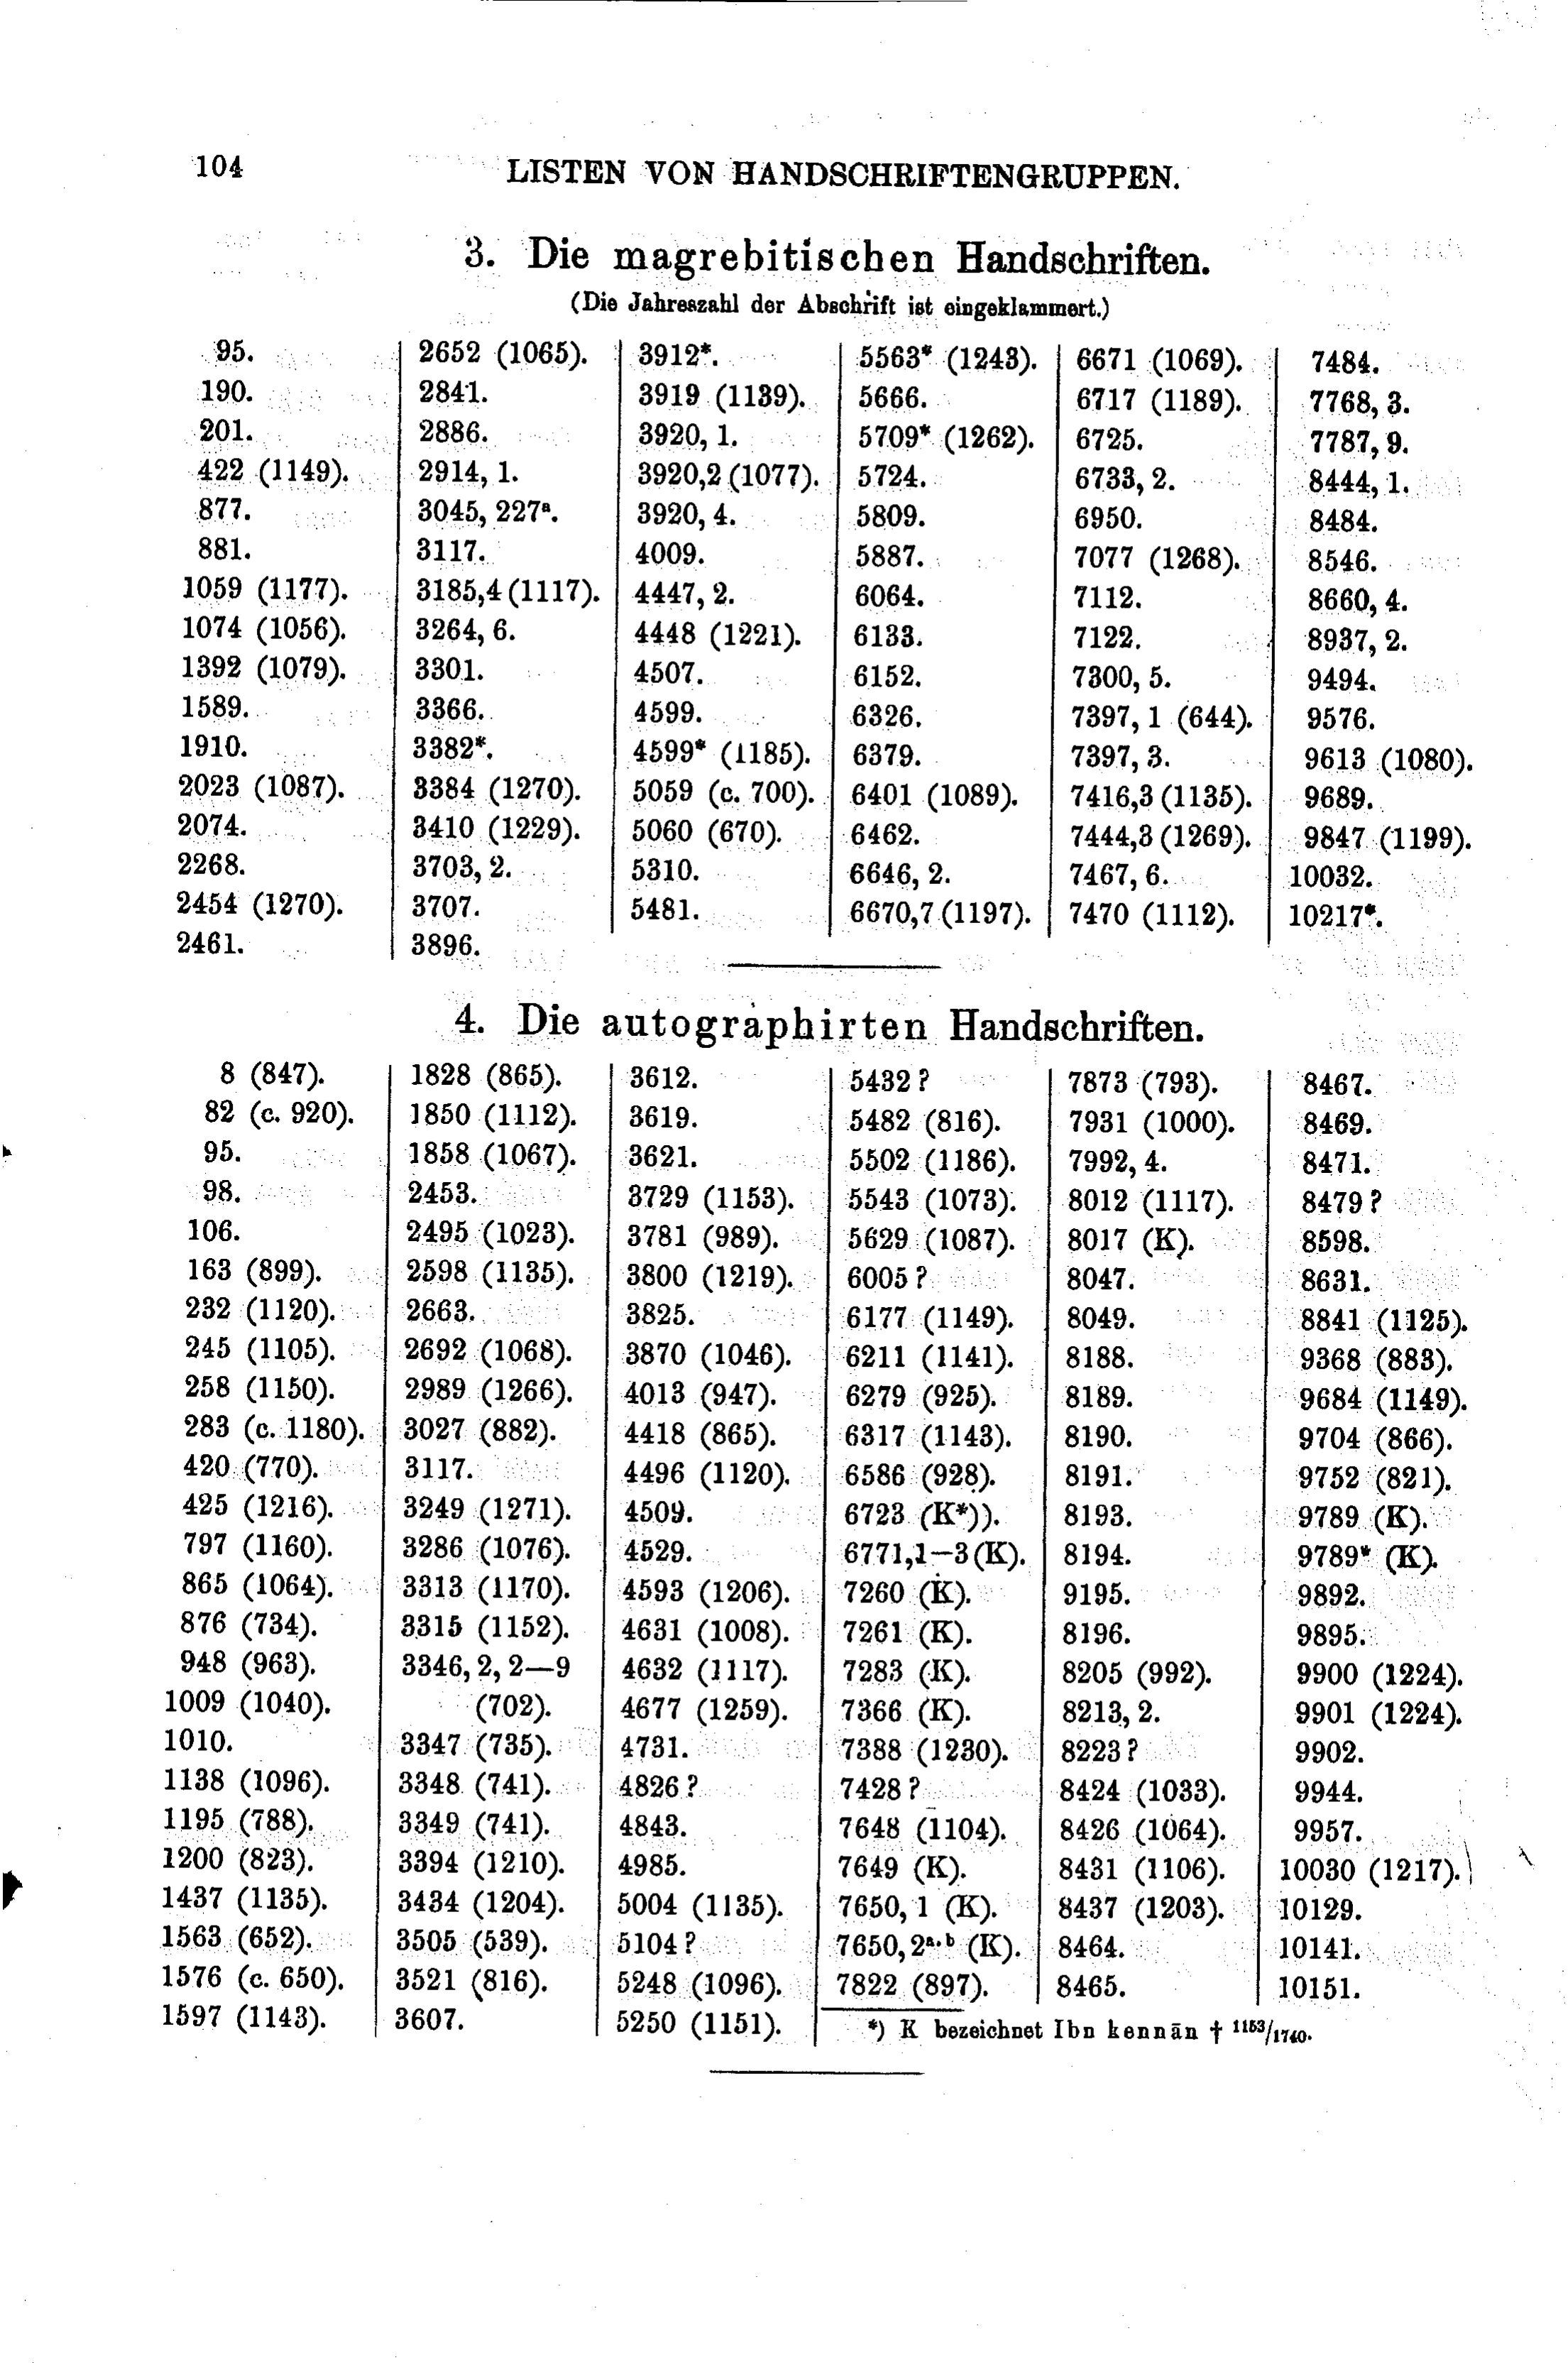 104
LISTEN VON HANDSCHRIFTENGRUPPEN.
3. Die magrebitischen Handschriften.
(Die Jahreszahl der Abschrift ist eingeklammert.)
95.
190.
201.
422 (1149).
877.
881.
1059 (1177).
1074 (1056).
1392 (1079).
1589.
1910.
2023 (1087).
2074.
2268.
2454 (1270).
2461.
2652 (1065).
2841.
2886.
2914, 1.
3045, 227ª.
3117.
3185,4 (1117).
3264, 6.
3301.
3366.
3382*.
3384 (1270).
3410 (1229).
3703, 2.
3707.
3896.
3912*.
3919 (1139).
3920, 1.
3920,2 (1077).
3920, 4.
4009.
4447, 2.
4448 (1221).
4507.
4599.
4599* (1185).
5059 (c. 700).
5060 (670).
5310.
5481.
5563* (1243).
5666.
5709* (1262).
5724.
5809.
5887.
6064.
6133.
6152.
6326.
6379.
6401 (1089).
6462.
6646, 2.
6670,7 (1197).
6671 (1069).
6717 (1189).
6725.
6733, 2.
6950.
7077 (1268).
7112.
7122.
7300, 5.
7397, 1 (644).
7397, 3.
7416,3 (1135).
7444,3 (1269).
7467, 6.
7470 (1112).
7484.
7768, 3.
7787, 9.
8444, 1.
8484.
8546.
8660, 4.
8937, 2.
9494.
9576.
9613 (1080).
9689.
9847 (1199).
10032.
10217*.
4. Die autographirten Handschriften.
8 (847).
82 (c. 920).
95.
98.
106.
163 (899).
232 (1120).
245 (1105).
258 (1150).
283 (c. 1180).
420 (770).
425 (1216).
797 (1160).
865 (1064).
876 (734).
948 (963).
1009 (1040).
1010.
1138 (1096).
1195 (788).
1200 (823).
1437 (1135).
1563 (652).
1576 (c. 650).
1597 (1143).
1828 (865).
1850 (1112).
1858 (1067).
2453.
2495 (1023).
2598 (1135).
2663.
2692 (1068).
2989 (1266).
3027 (882).
3117.
3249 (1271).
3286 (1076).
3313 (1170).
3315 (1152).
3346, 2, 2—9
(702).
3347 (735).
3348 (741).
3349 (741).
3394 (1210).
3434 (1204).
3505 (539).
3521 (816).
3607.
3612.
3619.
3621.
3729 (1153).
3781 (989).
3800 (1219).
3825.
3870 (1046).
4013 (947).
4418 (865).
4496 (1120).
4509.
4529.
4593 (1206).
4631 (1008).
4632 (1117).
4677 (1259).
4731.
4826?
4843.
4985.
5004 (1135).
5104?
5248 (1096).
5250 (1151).
5432?
5482 (816).
5502 (1186).
5543 (1073).
5629 (1087).
6005?
6177 (1149).
6211 (1141).
6279 (925).
6317 (1143).
6586 (928).
6723 (K*)).
6771,1—3 (K).
7260 (K).
7261 (K).
7283 (K).
7366 (K).
7388 (1230).
7428?
7648 (1104).
7649 (K).
7650, 1 (K).
7650, 2ª·ᵇ (K).
7822 (897).
7873 (793).
7931 (1000).
7992, 4.
8012 (1117).
8017 (K).
8047.
8049.
8188.
8189.
8190.
8191.
8193.
8194.
9195.
8196.
8205 (992).
8213, 2.
8223?
8424 (1033).
8426 (1064).
8431 (1106).
8437 (1203).
8464.
8465.
8467.
8469.
8471.
8479?
8598.
8631.
8841 (1125).
9368 (883).
9684 (1149).
9704 (866).
9752 (821).
9789 (K).
9789* (K).
9892.
9895.
9900 (1224).
9901 (1224).
9902.
9944.
9957.
10030 (1217).
10129.
10141.
10151.
*) K bezeichnet Ibn kennān † 1153/1740.